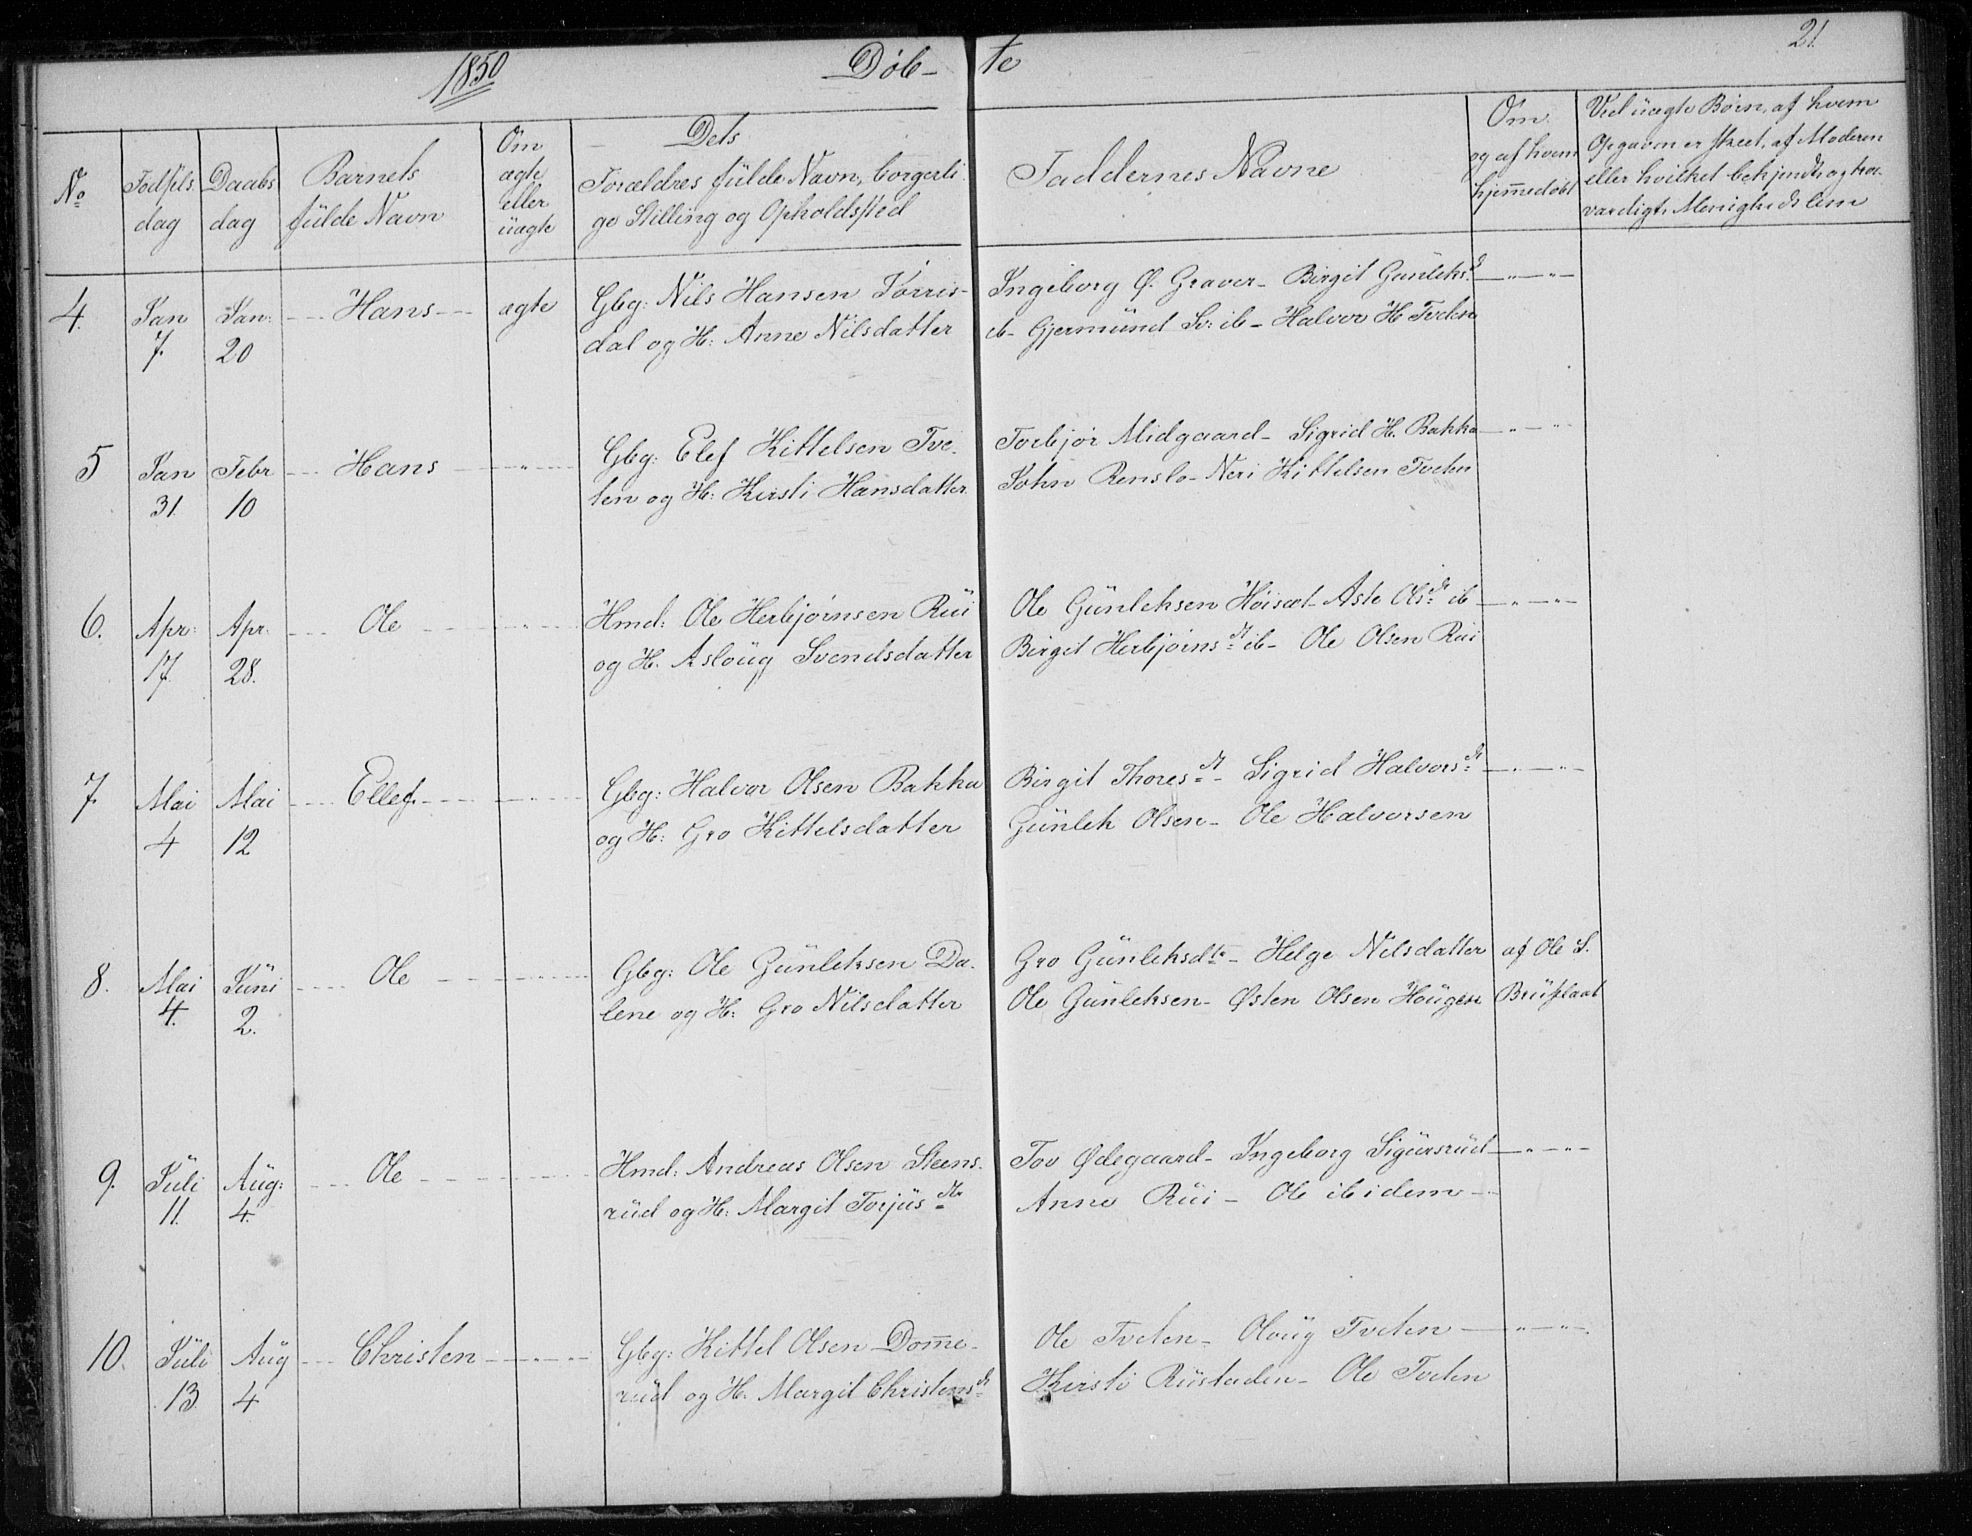 1850 Døb- te 21.
No Fødsels dag Daabs dag Barnets fulde Navn Om ægte eller uægte Dets Forældres fulde Navn, borgerli-
ge Stilling og Opholdsted Faddernes Navne Om og af hvem hjemedøbt Ved uægte Børn, af hvem
Opgaven er skeet, af Moderen
eller hvilket bekjendt og tro-
værdigt Menigheds lem
4. Jan 7. Jan: 20 Hans ægte Gbg: Nils Hansen Torris-
dal og H: Anne Nilsdatter
Ingeborg Ø. Graver - Birgit Gunleksd
ib - Gjermund Sv: ib - Halvor H Tveten
5 Jan 31. Febr 10 Hans " Gbg: Elef Kittelsen Tve-
ten og H: Kirsti Hansdatter
Torbjør Midgaard - Sigrid H. Bakka
John Renslo - Neri Kittelsen Tveten
6. Apr: 17. Apr. 28. Ole " Hmd: Ole Herbjørnsen Rui
og H. Asloug Svendsdatter
Ole Gunleksen Høisæt - Aste Olsdr ib
Birgit Herbjørnsdr ib - Ole Olsen Rui
7. Mai 4 Mai 12 Ellef " Gbg: Halvor Olsen Bakka
og H: Gro Kittelsdatter
Birgit Thoresdr - Sigrid Halvorsdr
Gunlek Olsen - Ole Halvorsen
8. Mai 4. Juni 2. Ole " Gbg: Ole Gunleksen Da-
lene og H: Gro Nilsdatter
Gro Gunleksdtr - Helge Nilsdatter af Ole S.
Ole Gunleksen - Østen Olsen Hougen Bruslaat
9. Juli 11. Aug: 4. Ole " Hmd: Andreas Olsen Steens-
rud og H: Margit Torjusdtr
Tov Ødegaard - Ingeborg Sigursrud
Anne Rui - Ole ibidem -
10. Juli 13. Aug 4 Christen " Gbg: Kittel Olsen Dome-
rud og H. Margit Christensdr
Ole Tveten - Oloug Tveten
Kirsti Rustaden - Ole Tveten